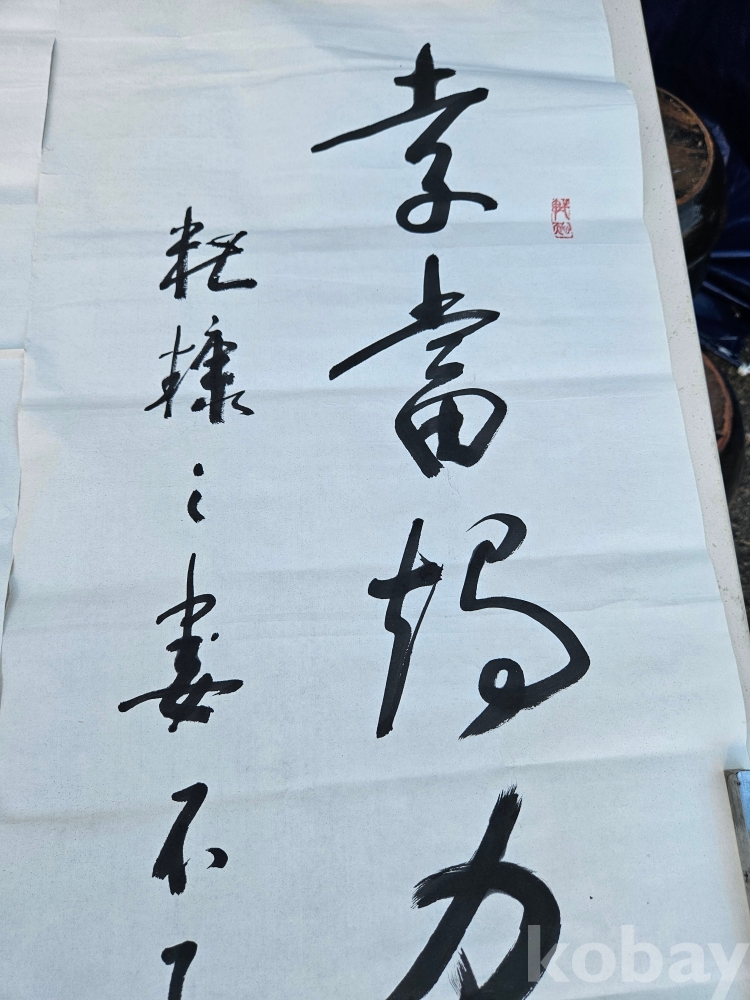 孝當竭力
糟糠之妻不下
kobay